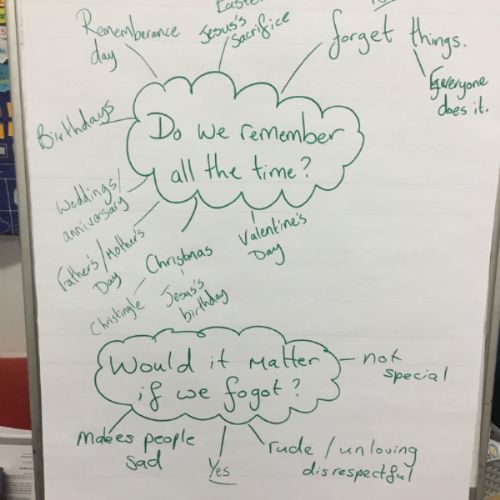 Easter
Rememberance
day
Jesus's
Sacrifice
forget things.
Everyone
does it.
Birthdays
Do we remember
all the time?
Weddings/
anniversary
Father's/Mother's
Day
Christmas
Christingle
Jesus's
birthday
Valentine's
Day
Would it Matter
if we fogot?
not
special
makes people
sad
Yes
rude / unloving
disrespectful